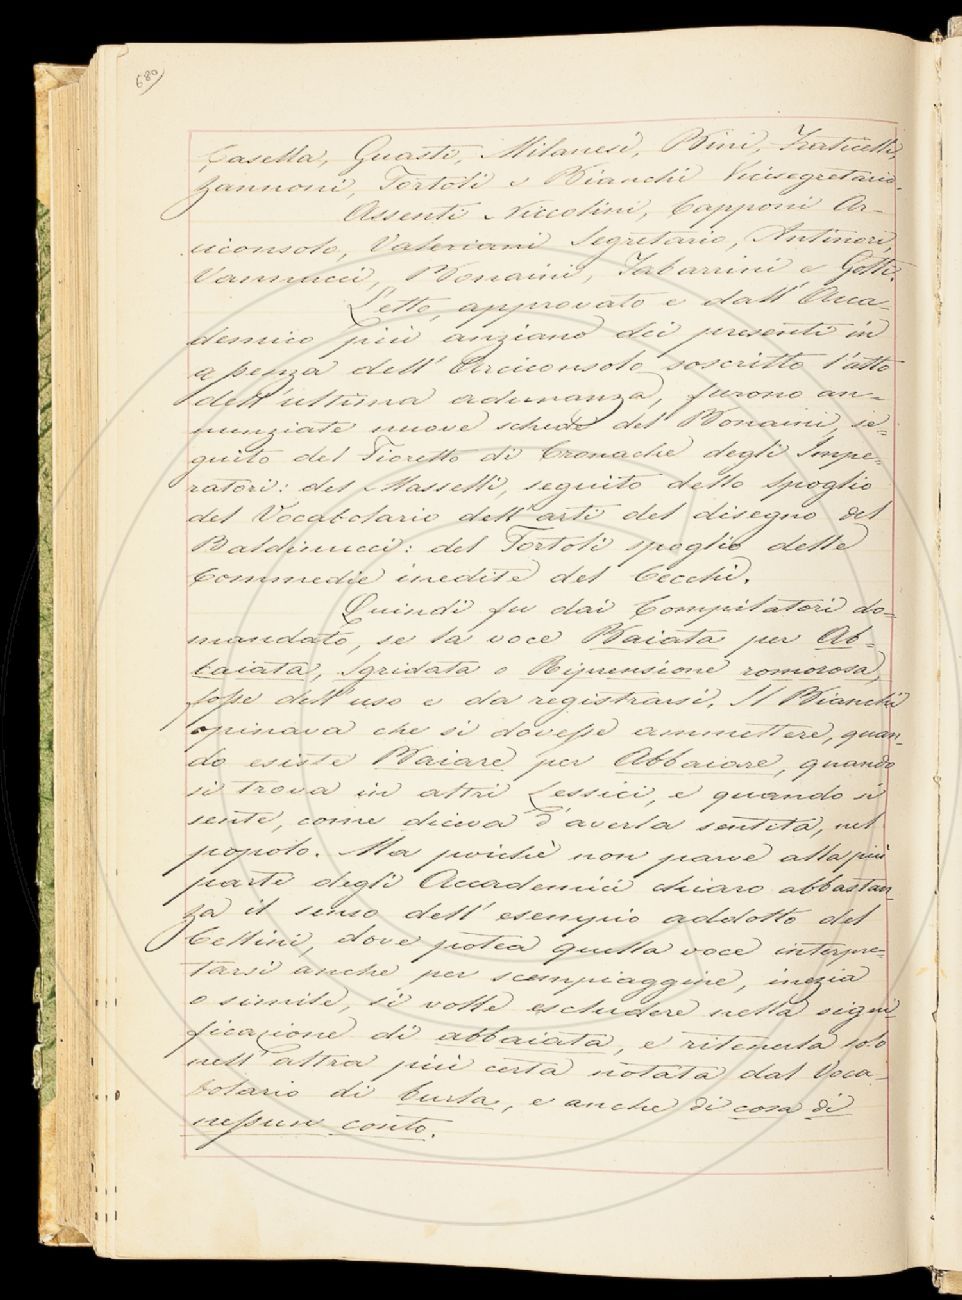 680
Casella, Guasti, Milanesi, Bini, Fraticelli,
Zannoni, Tortoli e Bianchi Vicesegretario.
Assenti Niccolini, Capponi Ar-
ciconsolo, Valeriani Segretario, Antinori,
Vannucci, Bonaini, Tabarrini e Gotti.
Letto, approvato e dall'Acca-
demico più anziano dei presenti in
assenza dell'Arciconsolo soscritto l'atto
dell'ultima adunanza, furono an-
nunziate nuove schede del Bonaini, se-
guito del Fioretto di Cronache degli Impe-
ratori: del Masselli, seguito dello Spoglio
del Vocabolario dell'arti del disegno del
Baldinucci: del Tortoli spoglio delle
Commedie inedite del Cecchi.
Quindi fu dai Compilatori do-
mandato, se la voce Baiata per Ab-
baiata, Sgridata o Riprensione romorosa,
fosse dell'uso e da registrarsi. Il Bianchi
opinava che si dovesse ammettere, quan-
do esiste Baiare per Abbaiare, quando
si trova in altri Lessici, e quando si
sente, come diceva d'averla sentita, nel
popolo. Ma poichè non parve alla più
parte degli Accademici chiaro abbastan-
za il senso dell'esempio addotto del
Cellini, dove potea quella voce interpre-
tarsi anche per scempiaggine, inezia
o simile, si volle escludere nella signi
ficazione di abbaiata, e ritenerla solo
nell'altra più certa notata dal Voca-
bolario di burla, e anche di cosa di
nessun conto.